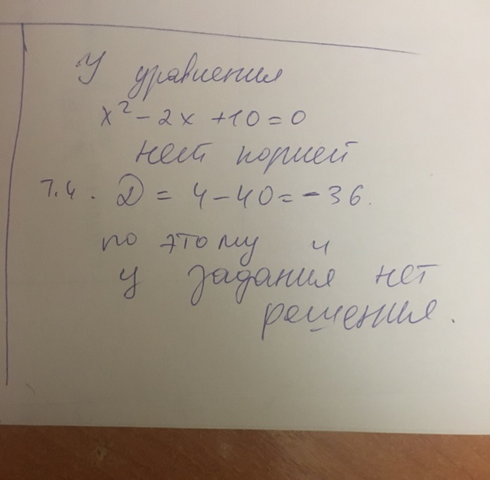 У уравнения
x² - 2x + 10 = 0
нет корней
т.к. D = 4 - 40 = -36.
по этому и
у задания нет
решения.